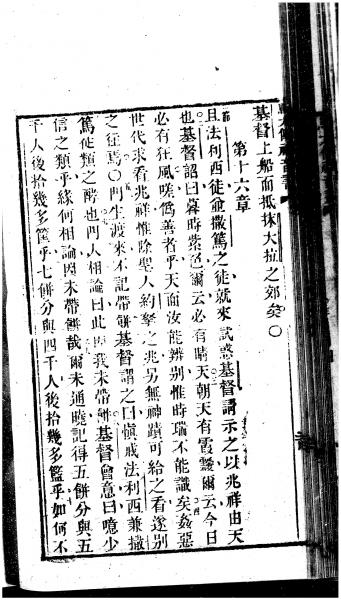 基督上船而抵抹大拉之郊矣〇
第十六章
且法利西徒兼撒篤之徒就來試惑基督請示之以兆祥由天
也基督詔曰暮時紫色爾云必有晴天朝天有霞靉爾云今日
必有狂風嗟僞善者乎天面汝能辨别惟時瑞不能識矣姦惡
世代求看兆祥惟除聖人約拏之兆另無神蹟可給之看遂别
之徃焉〇門生渡來不記帶餅基督謂之曰慎戒法利西兼撒
篤徒類之酵也門人相論曰此因我未帶餅基督會意曰噫少
信之類乎緣何相論因未帶餅哉爾未通曉記得五餅分與五
千人後拾幾多筐乎七餅分與四千人後拾幾多籃乎如何不